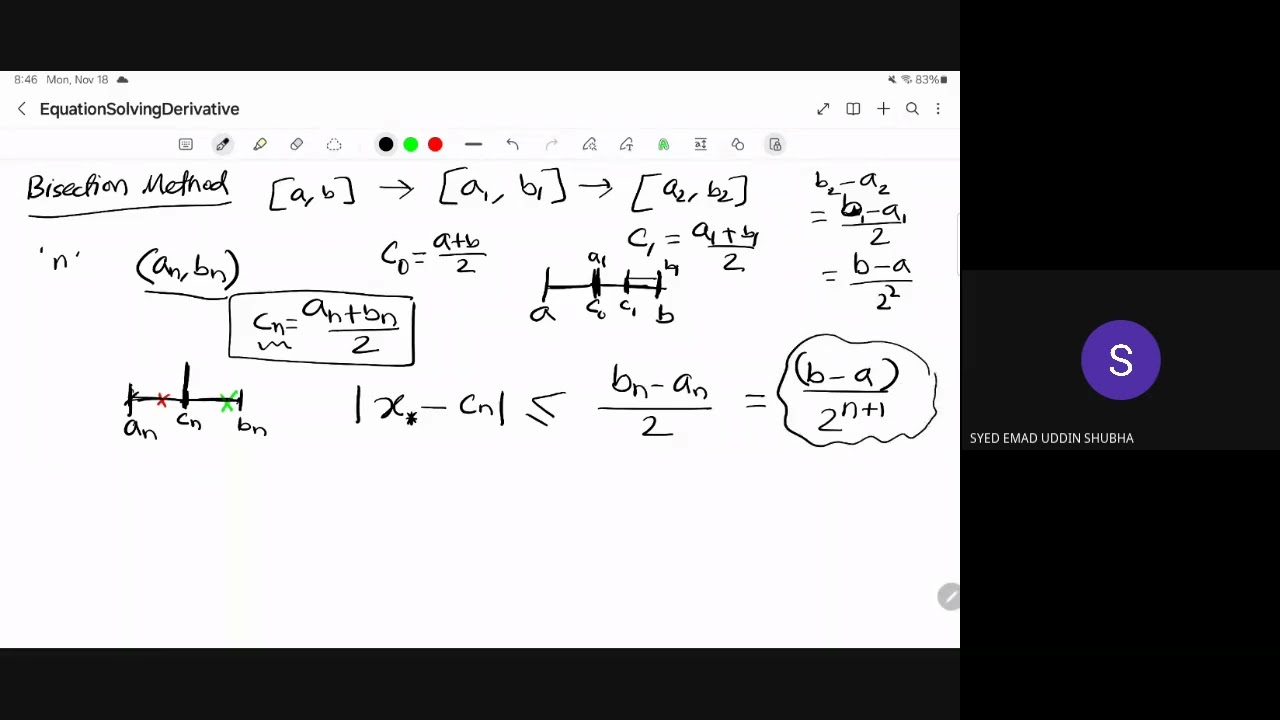 8:46 Mon, Nov 18 83%
EquationSolvingDerivative
Bisection Method [a, b] → [a₁, b₁] → [a₂, b₂]
b₂-a₂
= b₁-a₁/2
= b-a/2²
'n' (aₙ, bₙ) c₀ = a+b/2 c₁ = a₁+b₁/2
a₁ b₁
a c₀ c₁ b
cₙ = aₙ+bₙ/2
aₙ cₙ bₙ
|x⁎ - cₙ| ≤ bₙ-aₙ/2 = (b-a)/2ⁿ⁺¹
S
SYED EMAD UDDIN SHUBHA